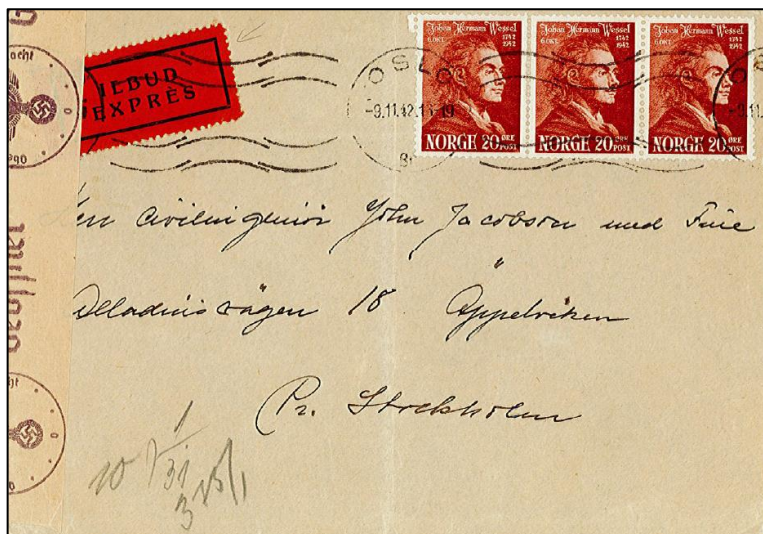 ILBUD
EXPRÈS
OSLO
-9.11.42.1
Johan Herman Wessel
6.OKT. 1742 1942
NORGE 20 ØRE POST
Johan Herman Wessel
6.OKT. 1742 1942
NORGE 20 ØRE POST
Johan Herman Wessel
6.OKT. 1742 1942
NORGE 20 ØRE POST
acht
Geöffnet
civilingeniör John Jacobson med Frue
18 Äppelviken
Pr. Stockholm
10 1
31
3